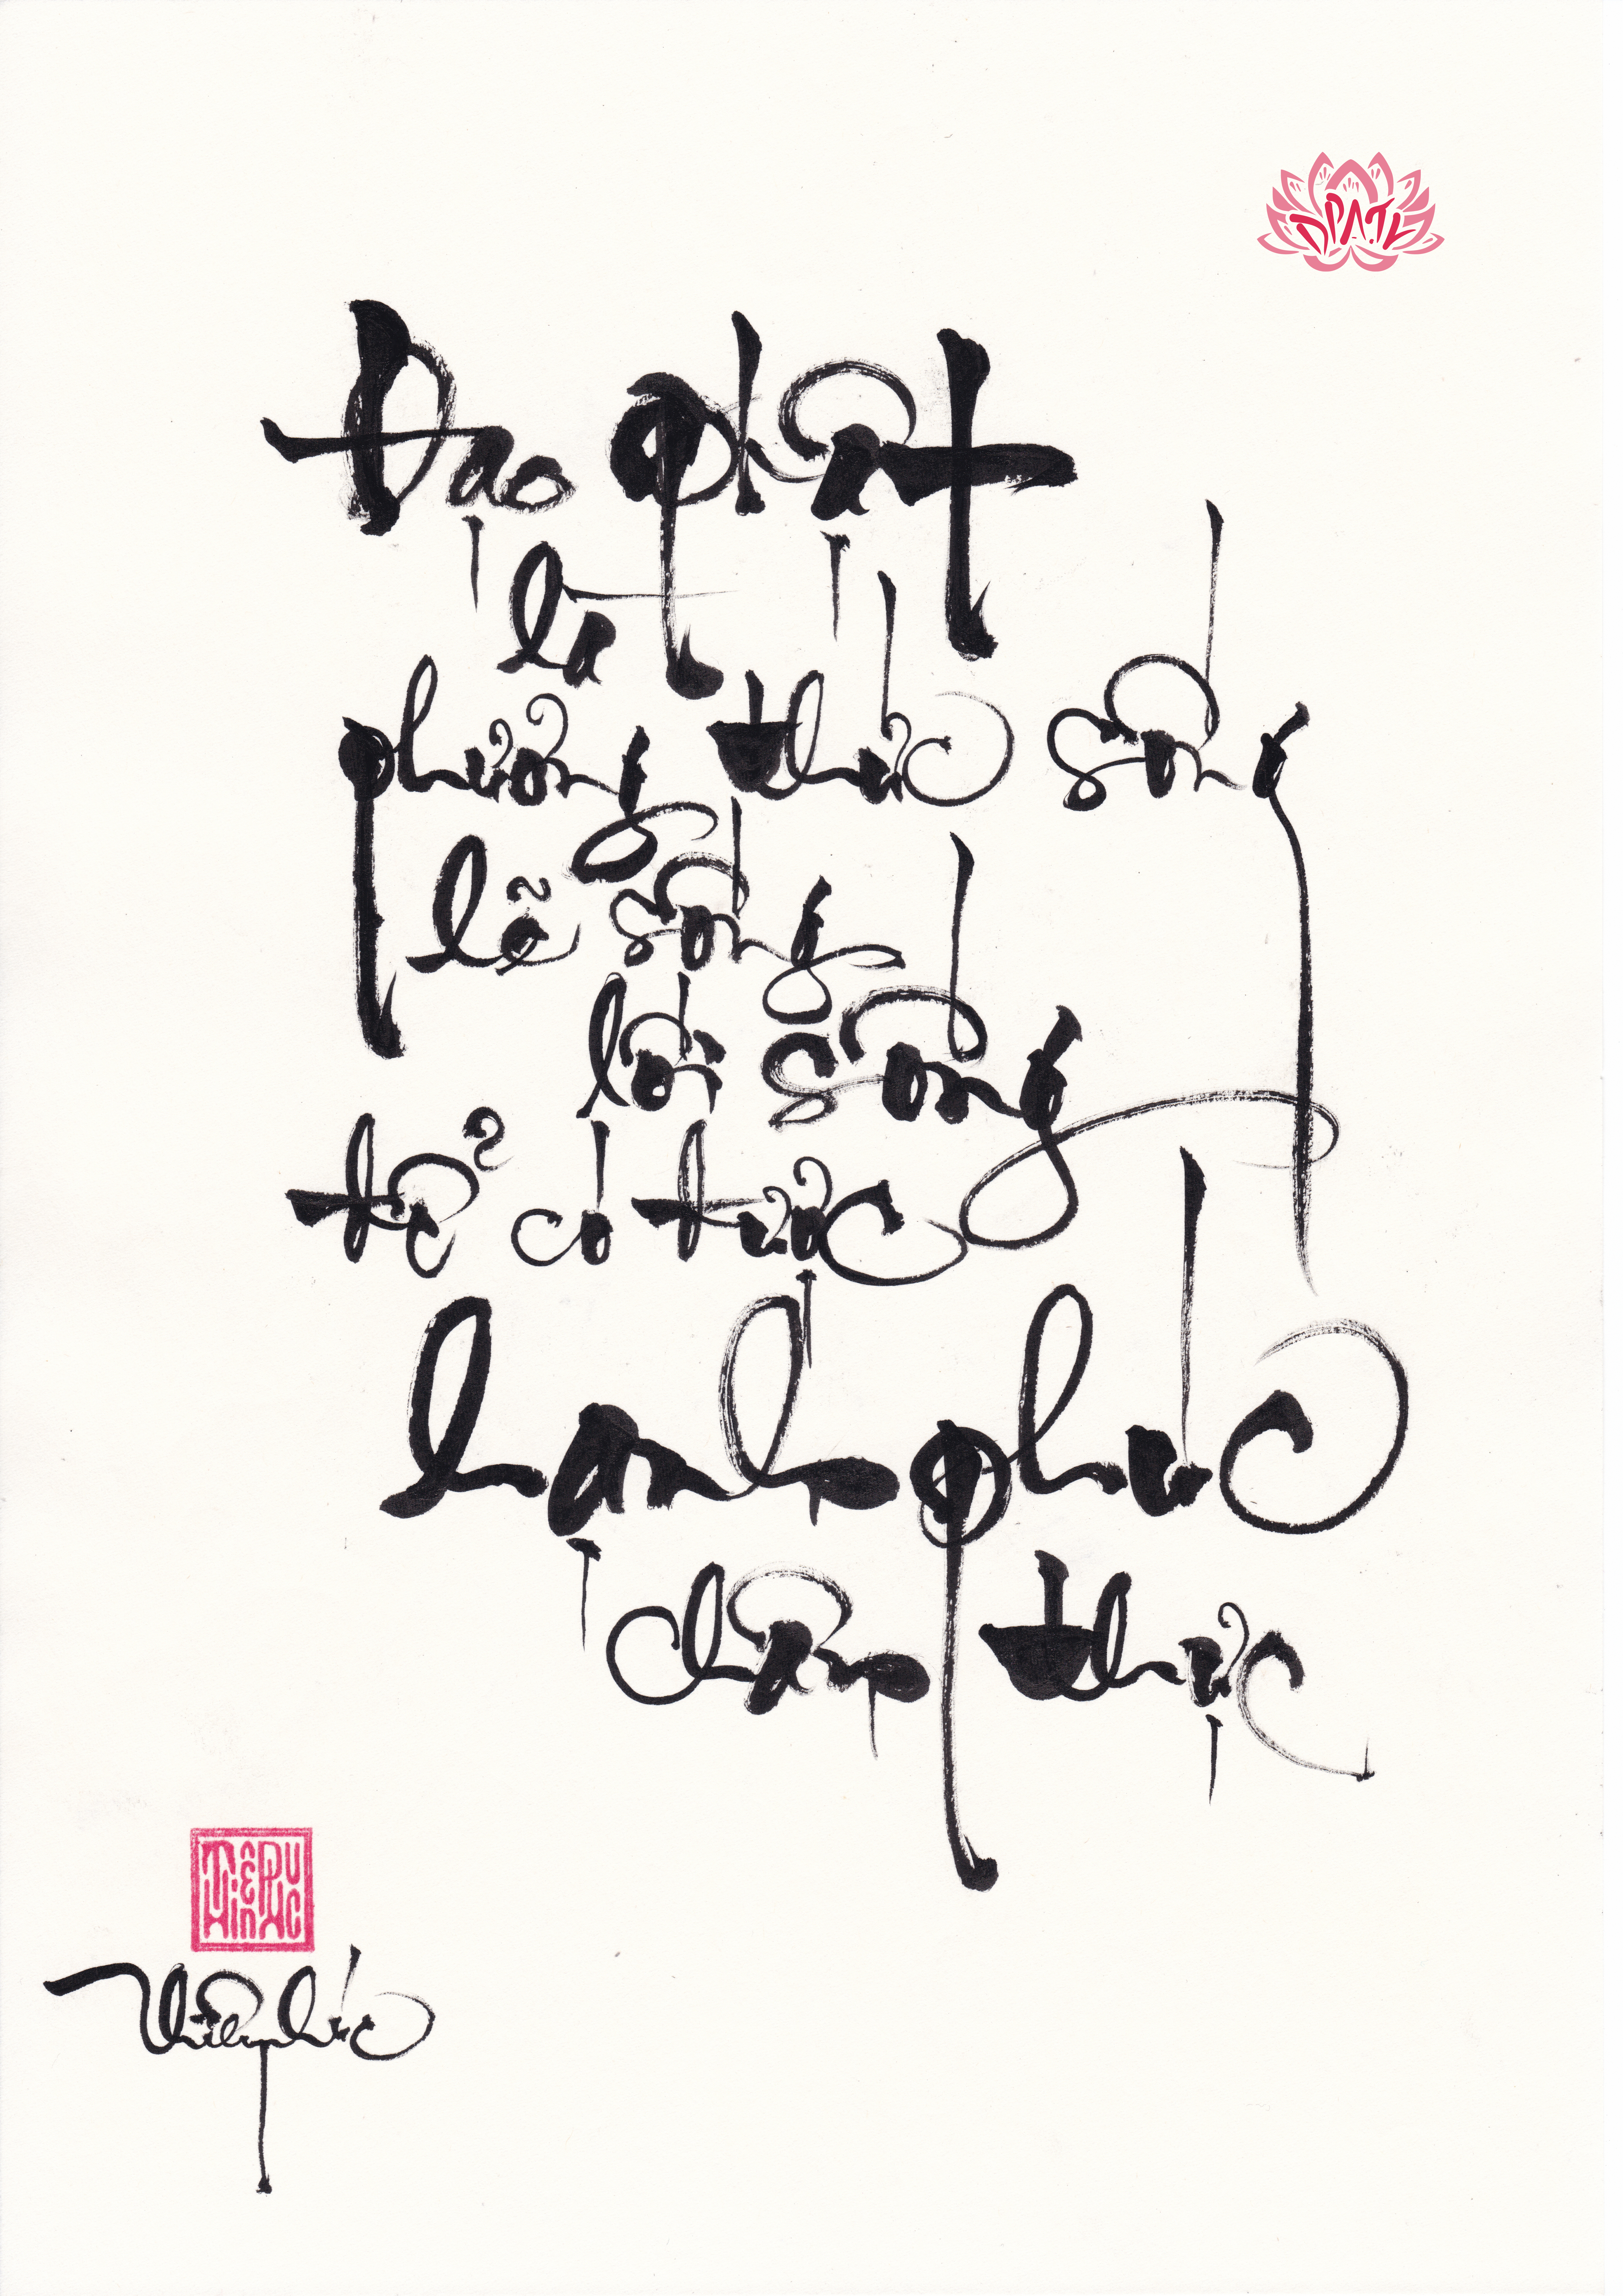 ĐPATK
Đạo Phật
là
phương thức sống
lẽ sống
lối sống
để có được
hạnh phúc
chân thực
Thiện Phúc